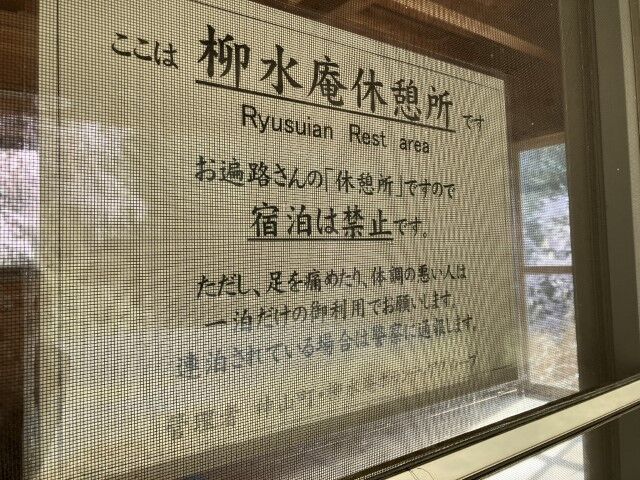 ここは 柳水庵休憩所 です
Ryusuian Rest area
お遍路さんの「休憩所」ですので
宿泊は禁止です。
ただし、足を痛めたり、体調の悪い人は
一泊だけの御利用でお願いします。
連泊されている場合は警察に通報します。
管理者 神山町・柳水庵